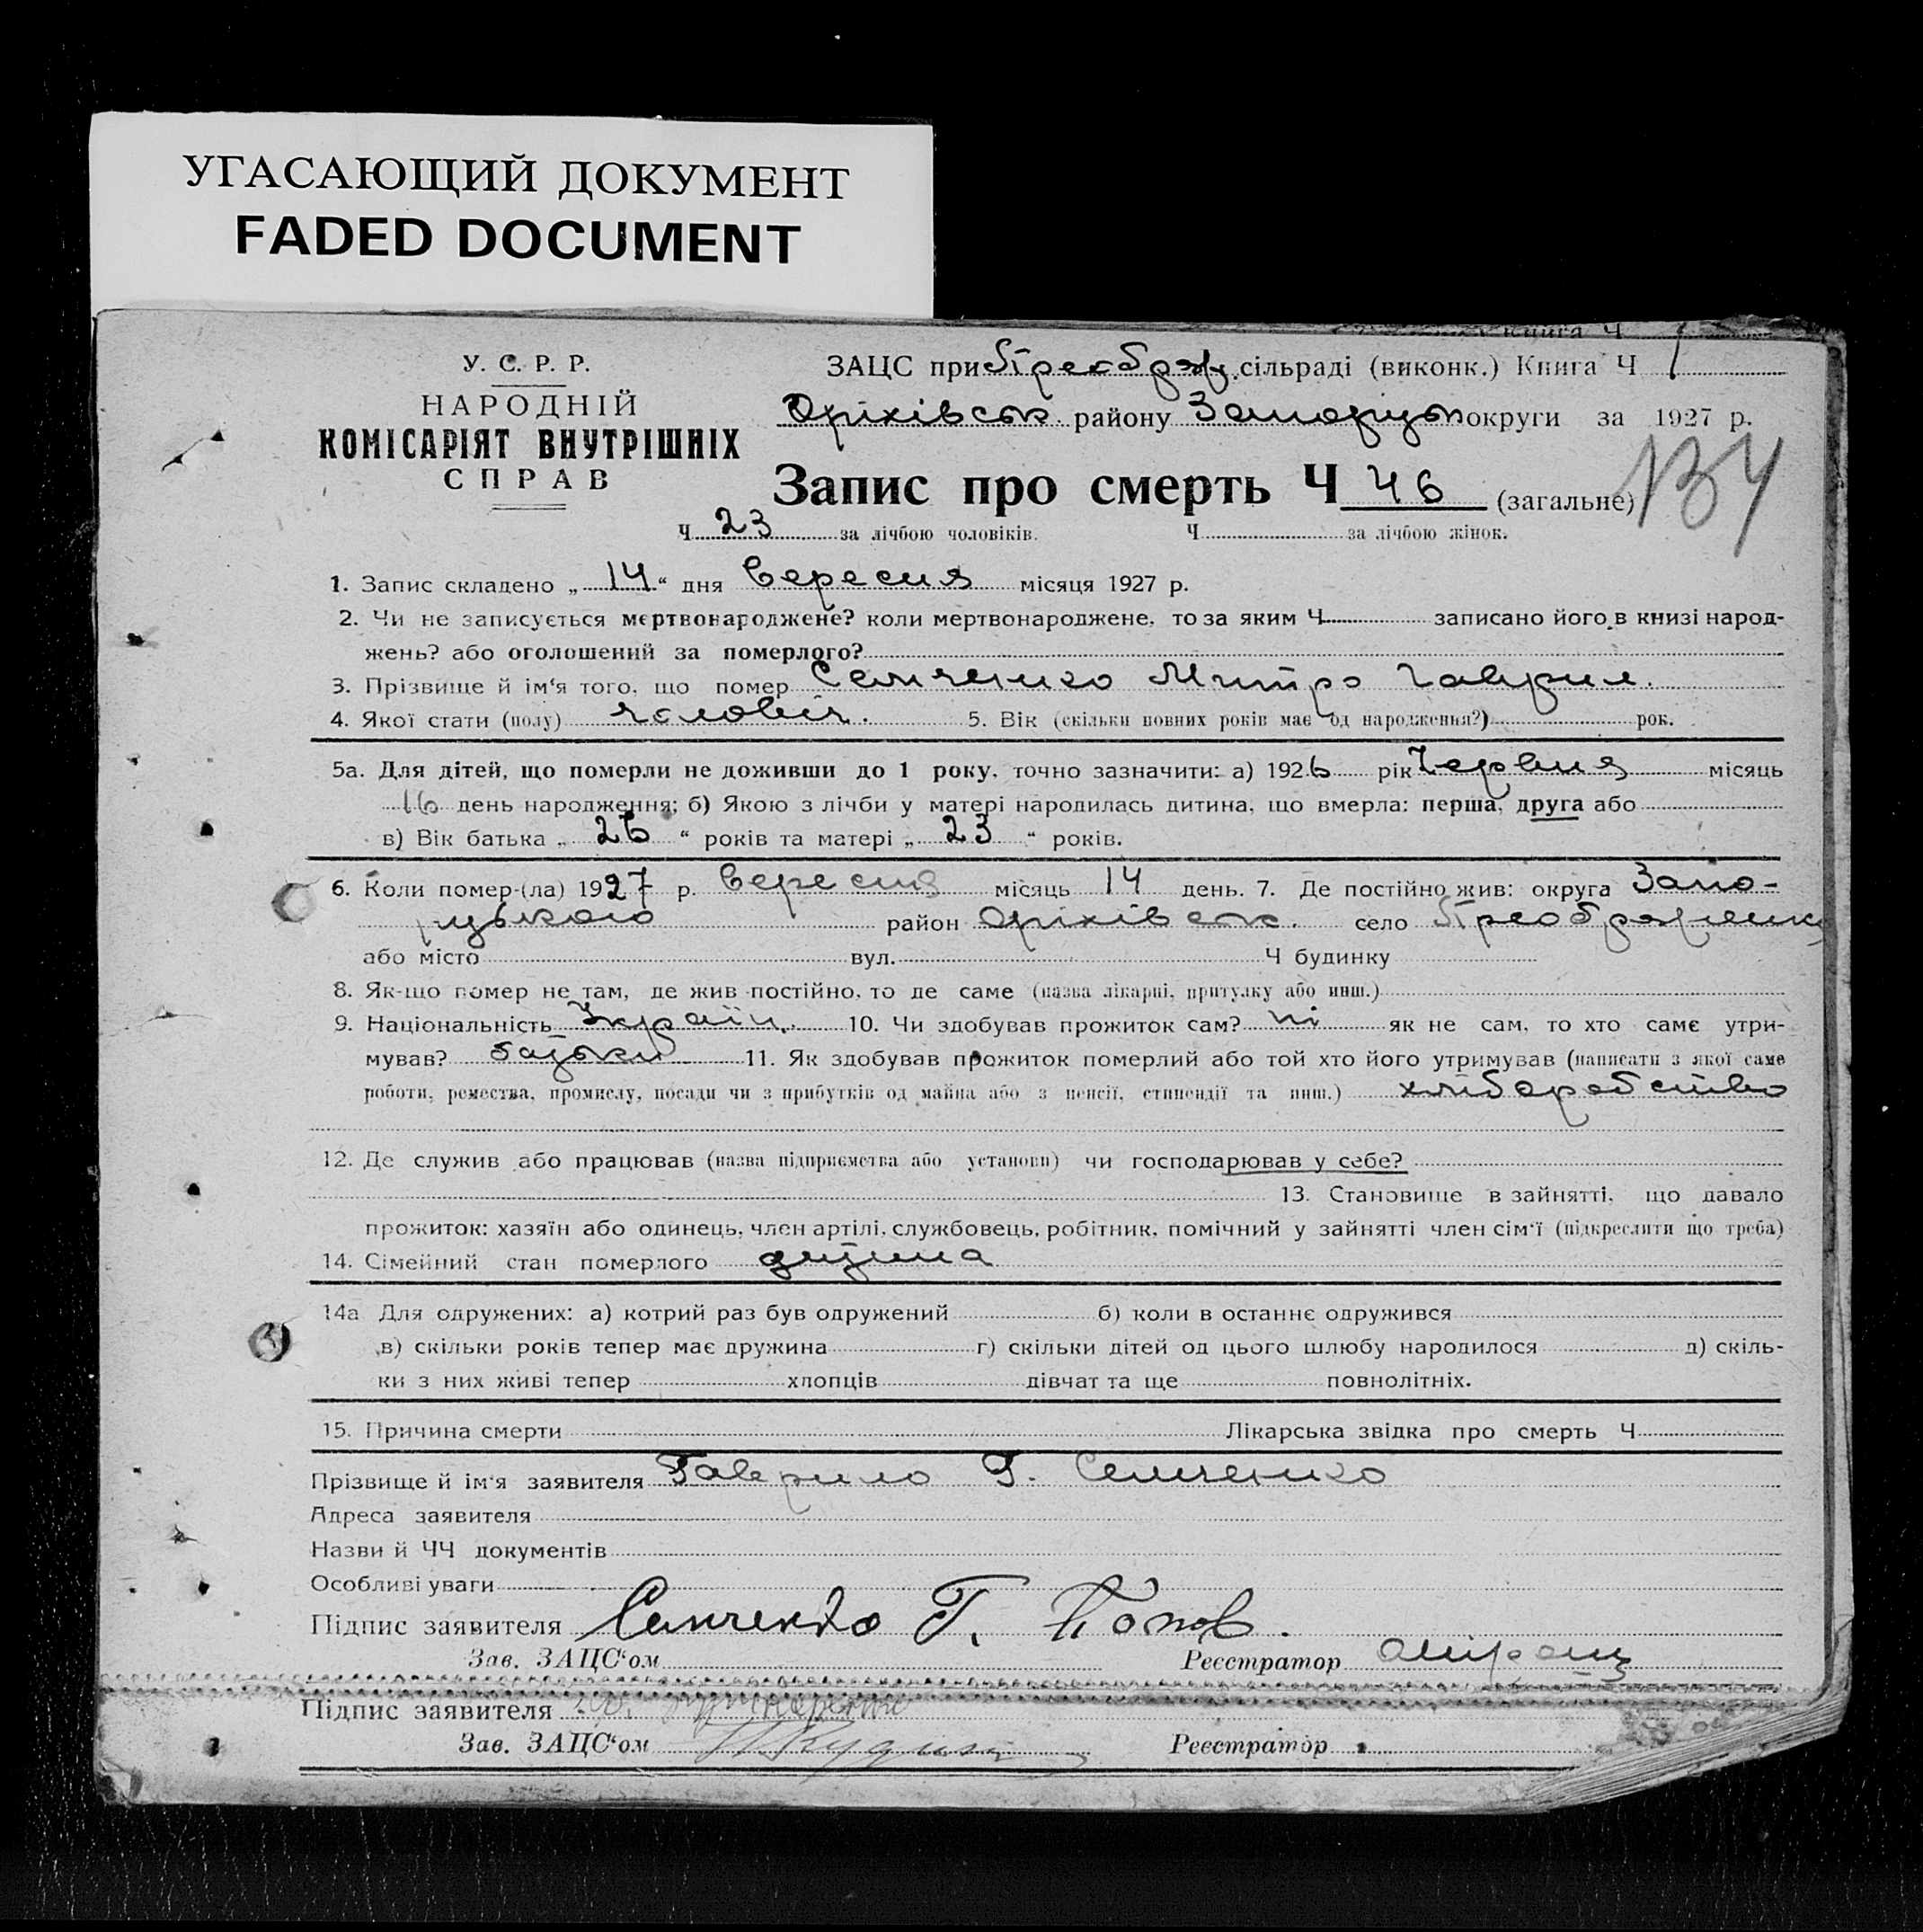 УГАСАЮЩИЙ ДОКУМЕНТ
FADED DOCUMENT
Книга Ч
У. С. Р. Р.
НАРОДНІЙ
КОМІСАРІЯТ ВНУТРІШНІХ
СПРАВ
ЗАЦС при Преображ. сільраді (виконк.) Книга Ч 1
Оріхівськ. району Запорізьк округи за 1927 р.
Запис про смерть Ч 46 (загальне)
134
Ч 23 за лічбою чоловіків. Ч за лічбою жінок.
1. Запис складено „ 14 “ дня Вересня місяця 1927 р.
2. Чи не записується мертвонароджене? коли мертвонароджене, то за яким Ч записано його в книзі народ-
жень? або оголошений за померлого?
3. Прізвище й ім‘я того, що помер Семченко Митро Гаврил.
4. Якої стати (полу) чоловіч. 5. Вік (скільки повних років має од народження?) рок.
5а. Для дітей, що померли не доживши до 1 року, точно зазначити: а) 1926 рік Червня місяць
16 день народження; б) Якою з лічби у матері народилась дитина, що вмерла: перша, друга або
в) Вік батька „ 26 “ років та матері „ 23 “ років.
6. Коли помер-(ла) 1927 р. Вересня місяць 14 день. 7. Де постійно жив: округа Запо-
район Оріхівськ. село Преображенку
або місто вул. Ч будинку
8. Як-що помер не там, де жив постійно, то де саме (назва лікарні, притулку або инш.)
9. Національність Україн. 10. Чи здобував прожиток сам? ні як не сам, то хто саме утри-
мував? батьки 11. Як здобував прожиток померлий або той хто його утримував (написати з якої саме
роботи, ремества, промислу, посади чи з прибутків од майна або з пенсії, стипендії та инш.) хліборобство
12. Де служив або працював (назва підприємства або установи) чи господарював у себе?
13. Становище в зайнятті, що давало
прожиток: хазяїн або одинець, член артілі, службовець, робітник, помічний у зайнятті член сім‘ї (підкреслити що треба)
14. Сімейний стан померлого дитина
14а Для одружених: а) котрий раз був одружений б) коли в останнє одружився
в) скільки років тепер має дружина г) скільки дітей од цього шлюбу народилося д) скіль-
ки з них живі тепер хлопців дівчат та ще повнолітніх.
15. Причина смерти Лікарська звідка про смерть Ч
Прізвище й ім‘я заявителя Гаврило Г. Семченко
Адреса заявителя
Назви й ЧЧ документів
Особливі уваги
Підпис заявителя Семченко Г. Попов.
Зав. ЗАЦС‘ом Реєстратор
Підпис заявителя
Зав. ЗАЦС‘ом Реєстратор